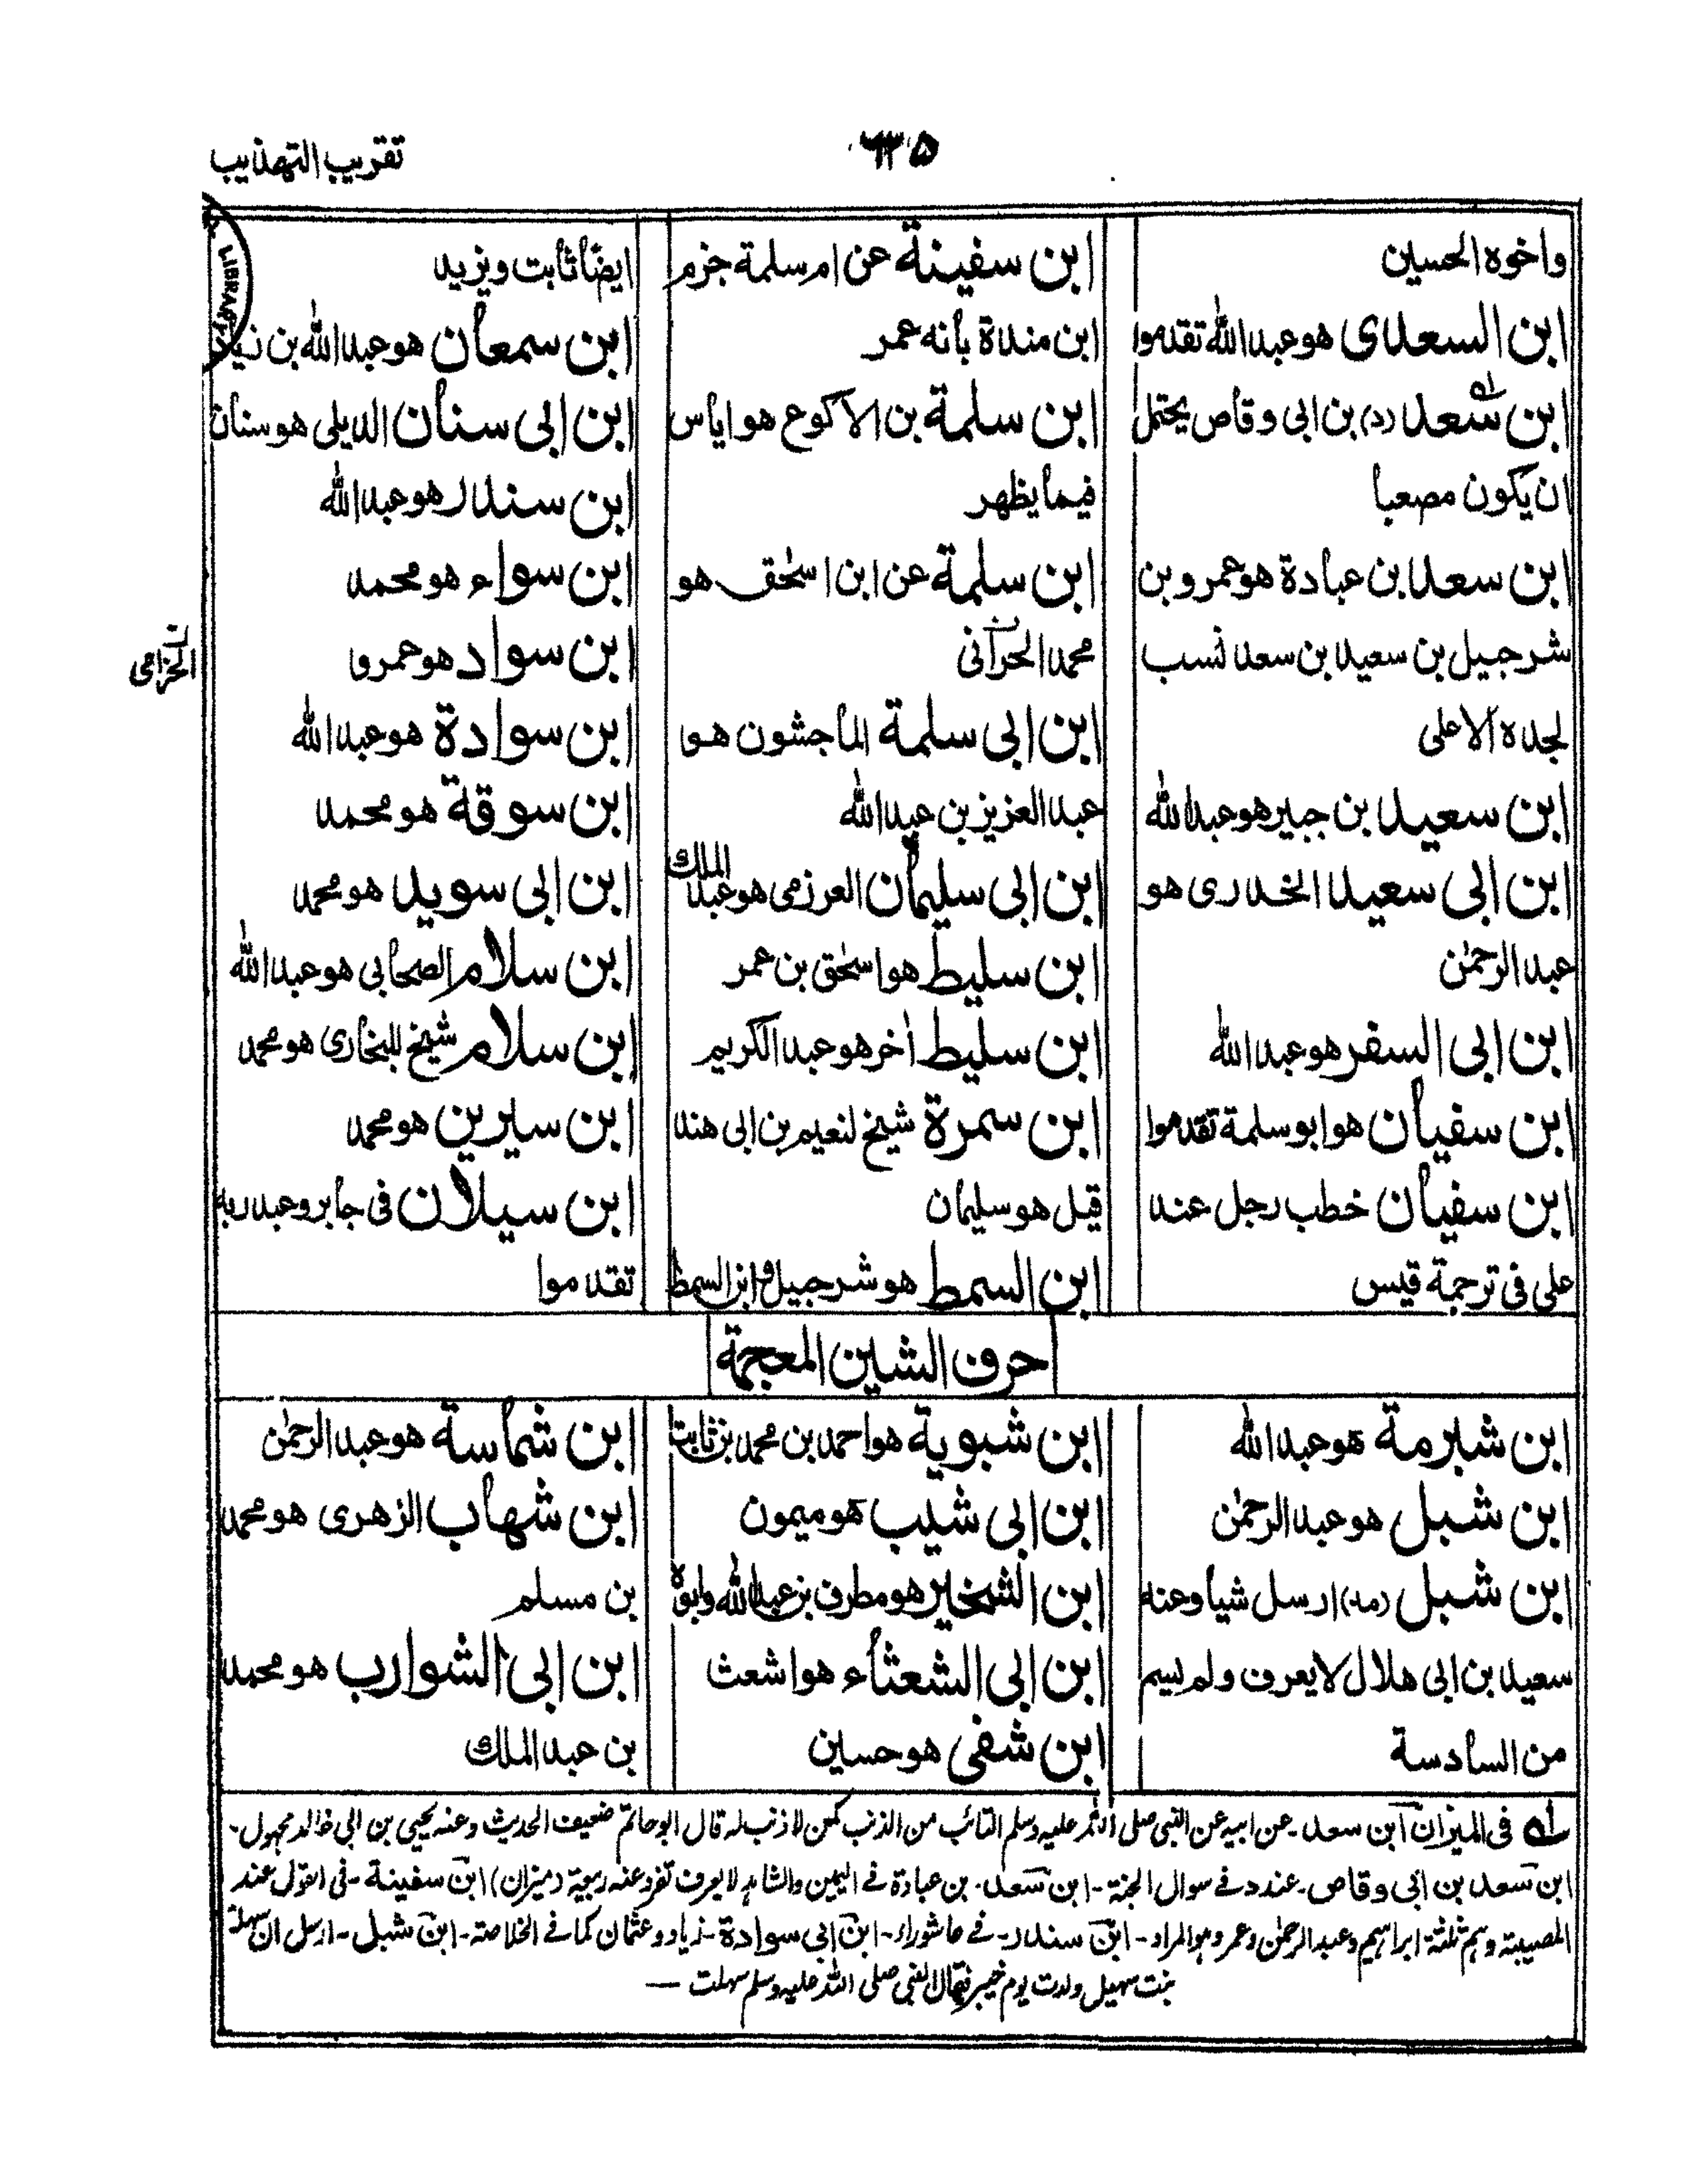 تقريب التهذيب
٦٣٥
واخوه الحسين
ابن السعدى هو عبدالله تقدموا
ابن سعد (د) بن ابى وقاص يحتمل
ان يكون مصعبا
ابن سعد بن عبادة هو عمرو بن
شرجيل بن سعيد بن سعد نسب
لجده الاعلى
ابن سعيد بن جبير هو عبدالله
ابن ابى سعيد الخدرى هو
عبد الرحمٰن
ابن ابى السفر هو عبدالله
ابن سفيان هو ابو سلمة تقدموا
ابن سفيان خطب رجل عند
على فى ترجمة قيس
ابن سفينة عن ام سلمة جزم
ابن مندة بانه عمر
ابن سلمة بن الاكوع هو اياس
فيما يظهر
ابن سلمة عن ابن اسحٰق هو
محمد الحرانى
ابن ابى سلمة الماجشون هو
عبد العزيز بن عبدالله
ابن ابى سليمان العرزمى هو عبد الملك
ابن سليط هو اسحٰق بن عمر
ابن سليط اٰخر هو عبد الكريم
ابن سمرة شيخ لنعيم بن ابى هند
قيل هو سليمان
ابن السمط هو شرجيل و ابن السمط
ايضًا ثابت ويزيد
ابن سمعان هو عبدالله بن زياد
ابن ابى سنان الديلى هو سنان
ابن سندر هو عبدالله
ابن سواء هو محمد
ابن سواد هو عمرو
ابن سوادة هو عبدالله
ابن سوقة هو محمد
ابن ابى سويد هو محمد
ابن سلام الصحابى هو عبدالله
ابن سلام شيخ للبخارى هو محمد
ابن سيرين هو محمد
ابن سيلان فى جابر وعبد ربه
تقدموا
ن الحزامى
حرف الشين المعجمة
ابن شبرمة هو عبدالله
ابن شبل هو عبد الرحمٰن
ابن شبل (مد) ارسل شيأ وعنه
سعيد بن ابى هلال لا يعرف ولم يسم
من السادسة
ابن شبوية هو احمد بن محمد بن ثابت
ابن ابى شبيب هو ميمون
ابن الشخير هو مطرف بن عبدالله وابوه
ابن ابى الشعثاء هو اشعث
ابن شفى هو حسين
ابن شماسة هو عبد الرحمٰن
ابن شهاب الزهرى هو محمد
بن مسلم
ابن ابى الشوارب هو محمد
بن عبد الملك
له فى الميزان ابن سعد - عن ابيه عن النبى صلى الله عليه وسلم التائب من الذنب كمن لا ذنب له قال ابو حاتم ضعيف الحديث وعنه يحيى بن ابى خالد مجهول -
ابن سعد بن ابى وقاص - عند د فى سوال الجنة - ابن سعد - بن عبادة فى اليمين والشاهد لا يعرف تفرد عنه ربيعة (ميزان) ابن سفينة - فى القول عند
المصيبة وهم ثلثة ابراهيم وعبد الرحمٰن وعمر وهو المراد - ابن سندر - فى عاشوراء - ابن ابى سوادة - زياد وعثمان كما فى الخلاصة - ابن شبل - ارسل ان سهلة
بنت سهيل ولدت يوم خيبر فقال النبى صلى الله عليه وسلم سهلت —